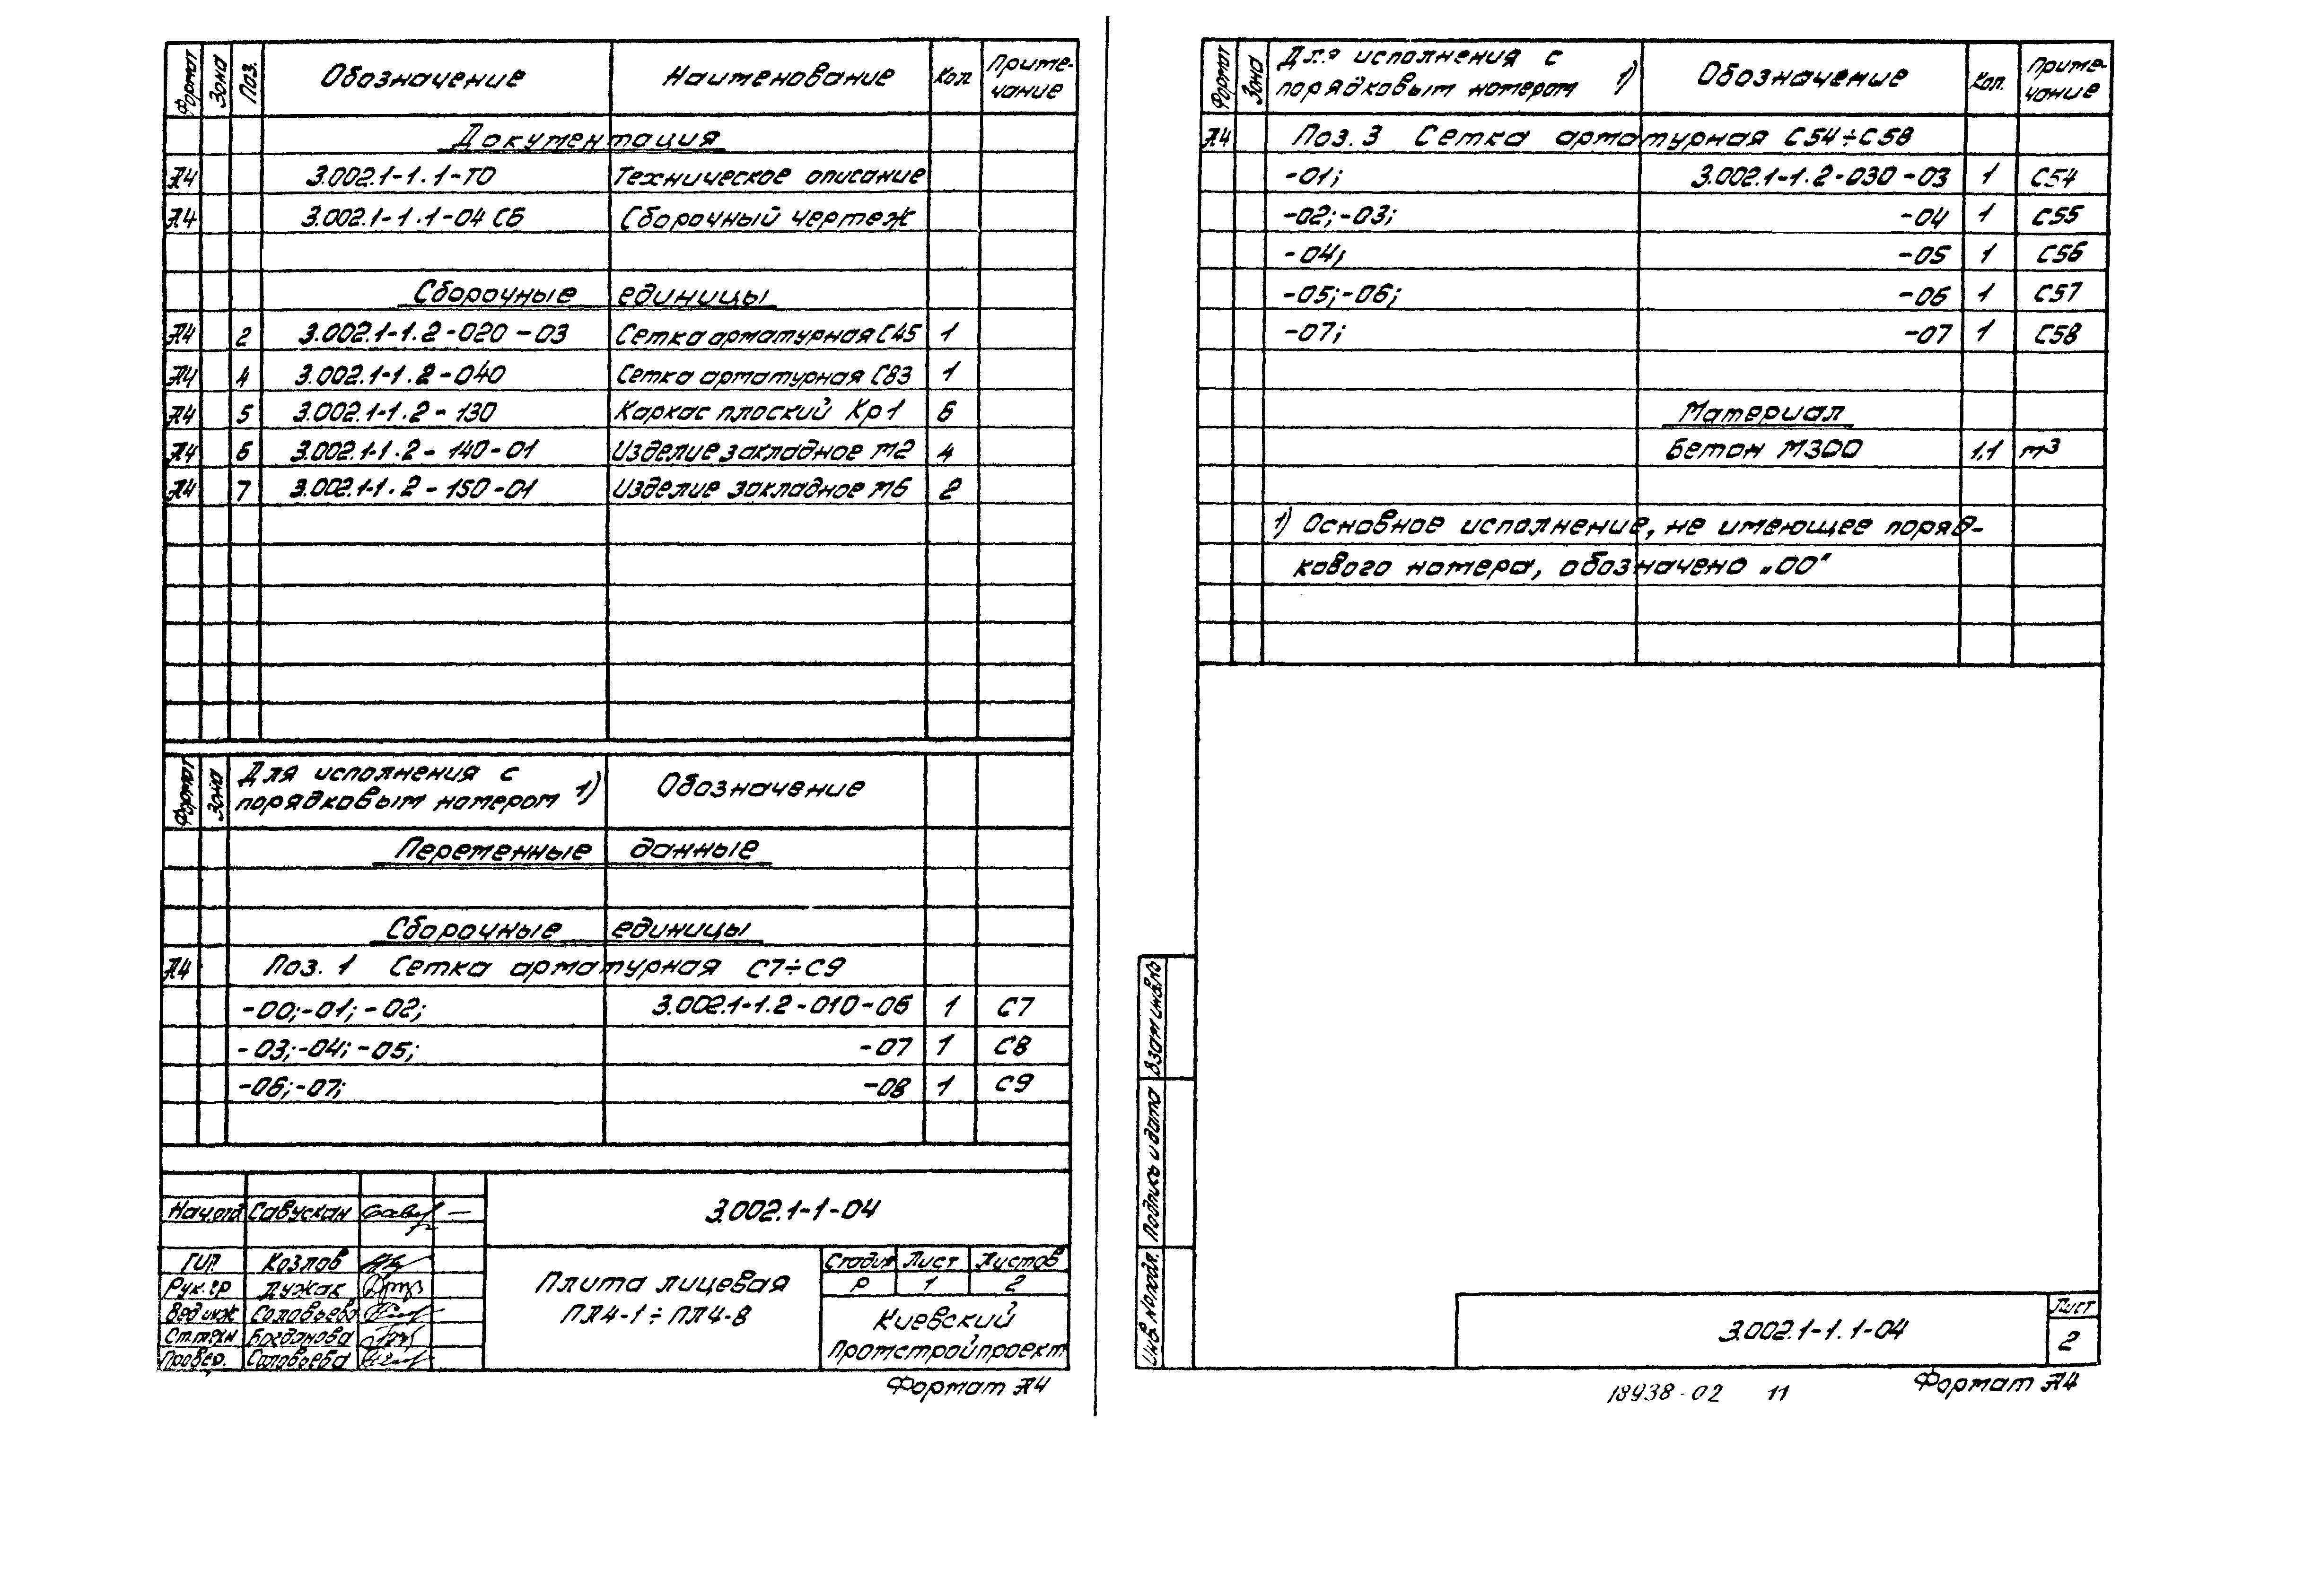 Формат Зона Поз. Обозначение Наименование Кол Приме-
чание
Документация
А4 3.002.1-1.1-ТО Техническое описание
А4 3.002.1-1.1-04 СБ Сборочный чертеж
Сборочные единицы
А4 2 3.002.1-1.2-020-03 Сетка арматурная С45 1
А4 4 3.002.1-1.2-040 Сетка арматурная С83 1
А4 5 3.002.1-1.2-130 Каркас плоский Кр1 6
А4 6 3.002.1-1.2-140-01 Изделие закладное М2 4
А4 7 3.002.1-1.2-150-01 Изделие закладное М6 2
Формат Зона Для исполнения с
порядковым номером 1) Обозначение
Переменные данные
Сборочные единицы
А4 Поз. 1 Сетка арматурная С7÷С9
-00;-01;-02; 3.002.1-1.2-010-06 1 С7
-03;-04;-05; -07 1 С8
-06;-07; -08 1 С9
Нач.отд Савускан
3.002.1-1-04
ГИП Козлов
Рук.гр Лужак
Вед инж Соловьева
Ст.техн Богданова
Провер. Соловьева
Плита лицевая
ПЛ4-1÷ПЛ4-8
Стадия Лист Листов
Р 1 2
Киевский
Промстройпроект
Формат А4
Формат Зона Для исполнения с
порядковым номером 1) Обозначение Кол. Приме-
чание
А4 Поз. 3 Сетка арматурная С54÷С58
-01; 3.002.1-1.2-030-03 1 С54
-02;-03; -04 1 С55
-04; -05 1 С56
-05;-06; -06 1 С57
-07; -07 1 С58
Материал
Бетон М300 1,1 м3
1) Основное исполнение, не имеющее поряд-
кового номера, обозначено „00"
Взам инв №
Подпись и дата
Инв. № подл.
3.002.1-1.1-04
Лист
2
18938-02 11
Формат А4